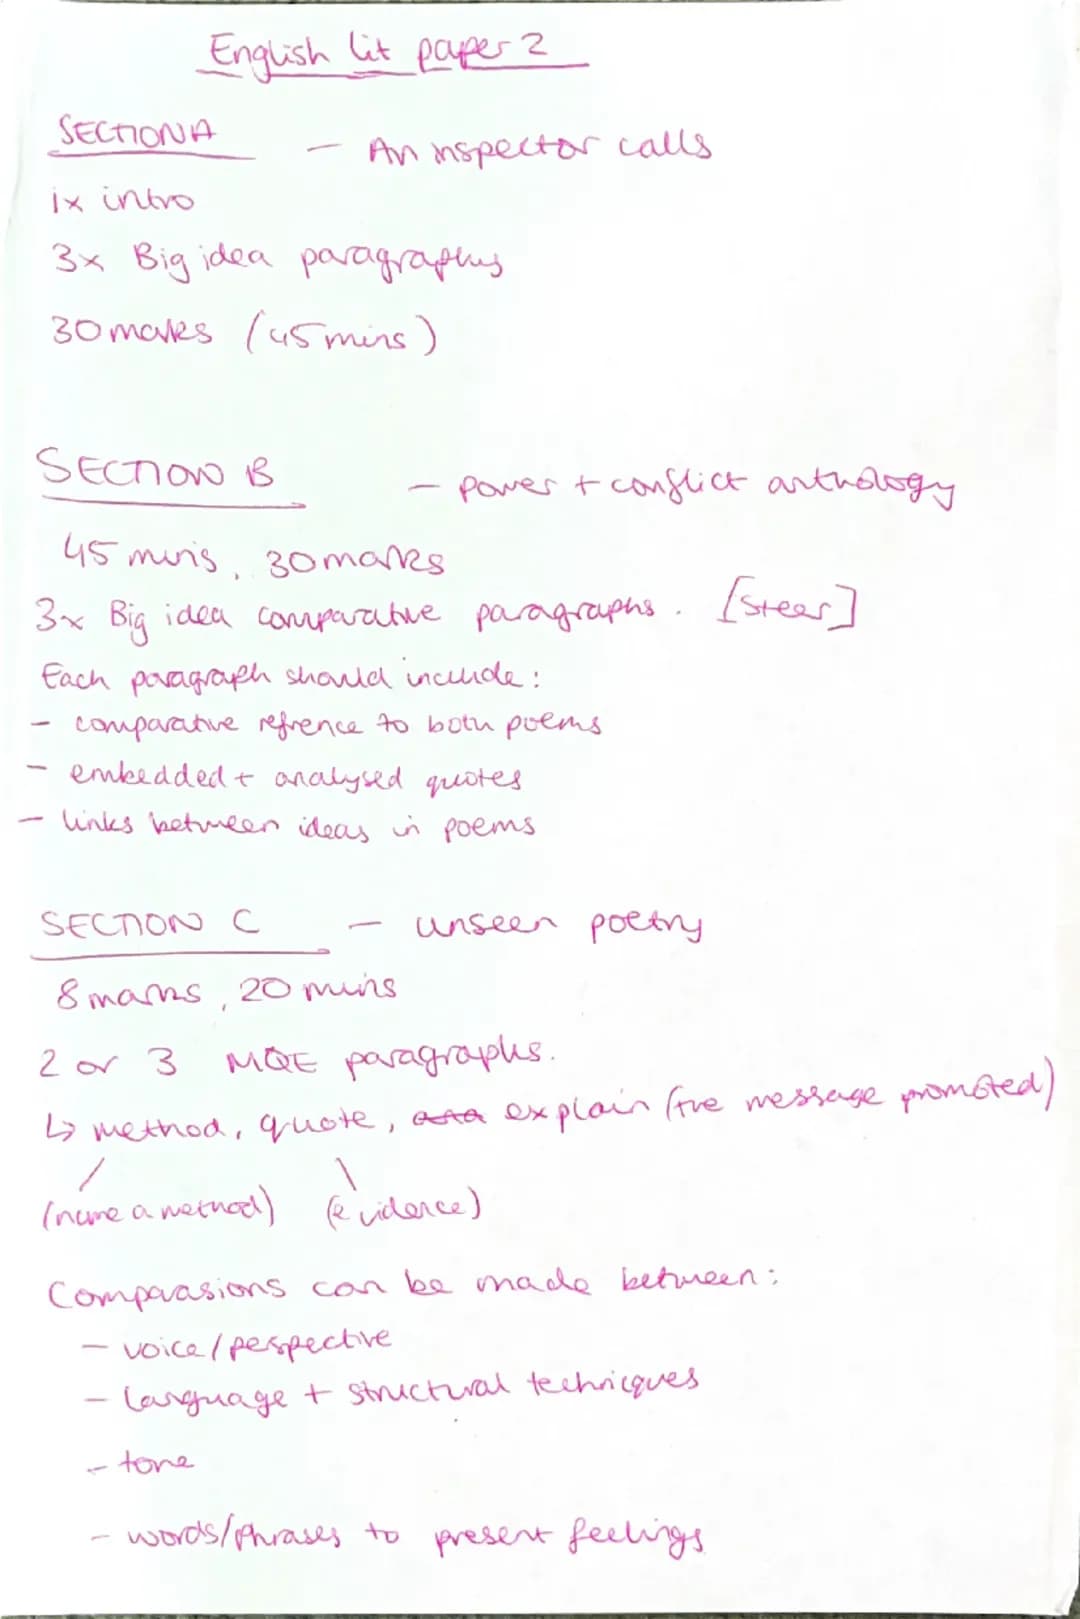 English lit paper 2
SECTION A - An inspector calls
1x intro
3x Big idea paragraphs
30 marks (45 mins)
SECTION B - power + conflict anthology
45 mins, 30 marks
3x Big idea comparative paragraphs. [Steer]
Each paragraph should include:
- comparative refrence to both poems
- embedded + analysed quotes
- links between ideas in poems
SECTION C - unseen poetry
8 marks, 20 mins
2 or 3 MQE paragraphs.
↳ method, quote, explain (the message promoted)
(name a method) (evidence)
Comparasions can be made between:
- voice/perspective
- language + structural techniques
- tone
- words/phrases to present feelings